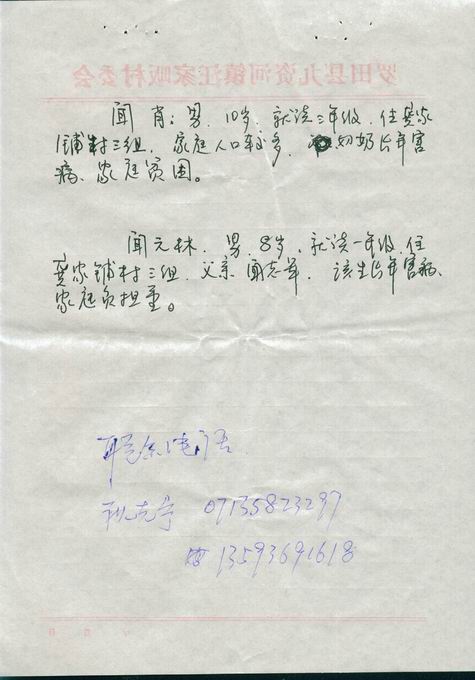 罗田县九资河镇汪家畈村委会
闻肖:男,10岁,就读三年级,住龚家
铺村三组,家庭人口较多,奶奶长年害
病、家庭贫困。
闻元林,男,8岁,就读一年级,住
龚家铺村三组,父亲闻志军,该生长年害病、
家庭负担重。
联系电话
07135823297
13593691618
年 月 日